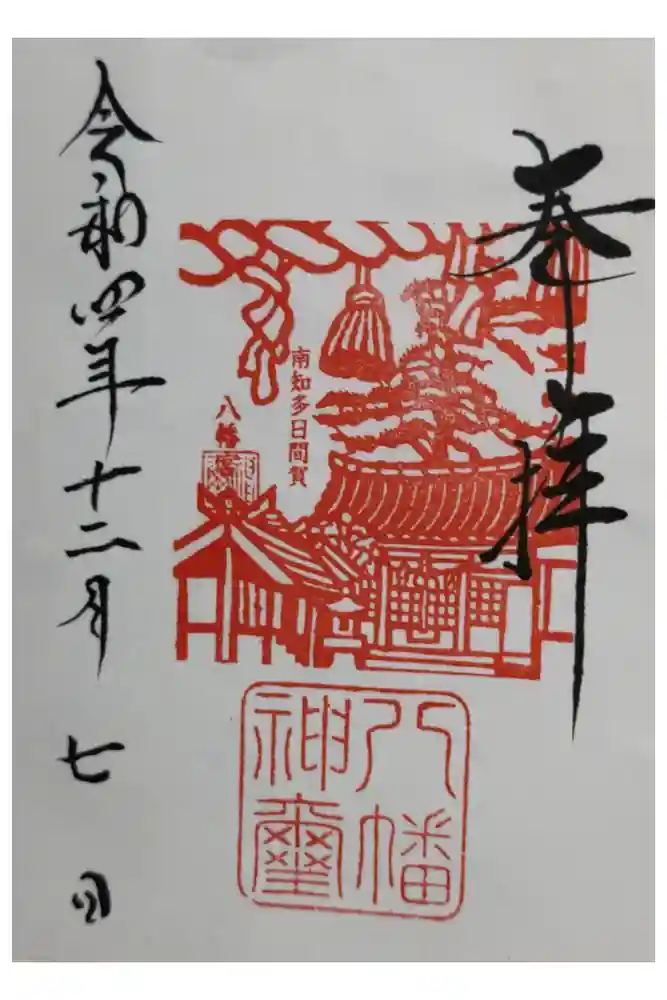 奉拝
南知多日間賀
八幡宮
八幡
神璽
令和四年十二月七日